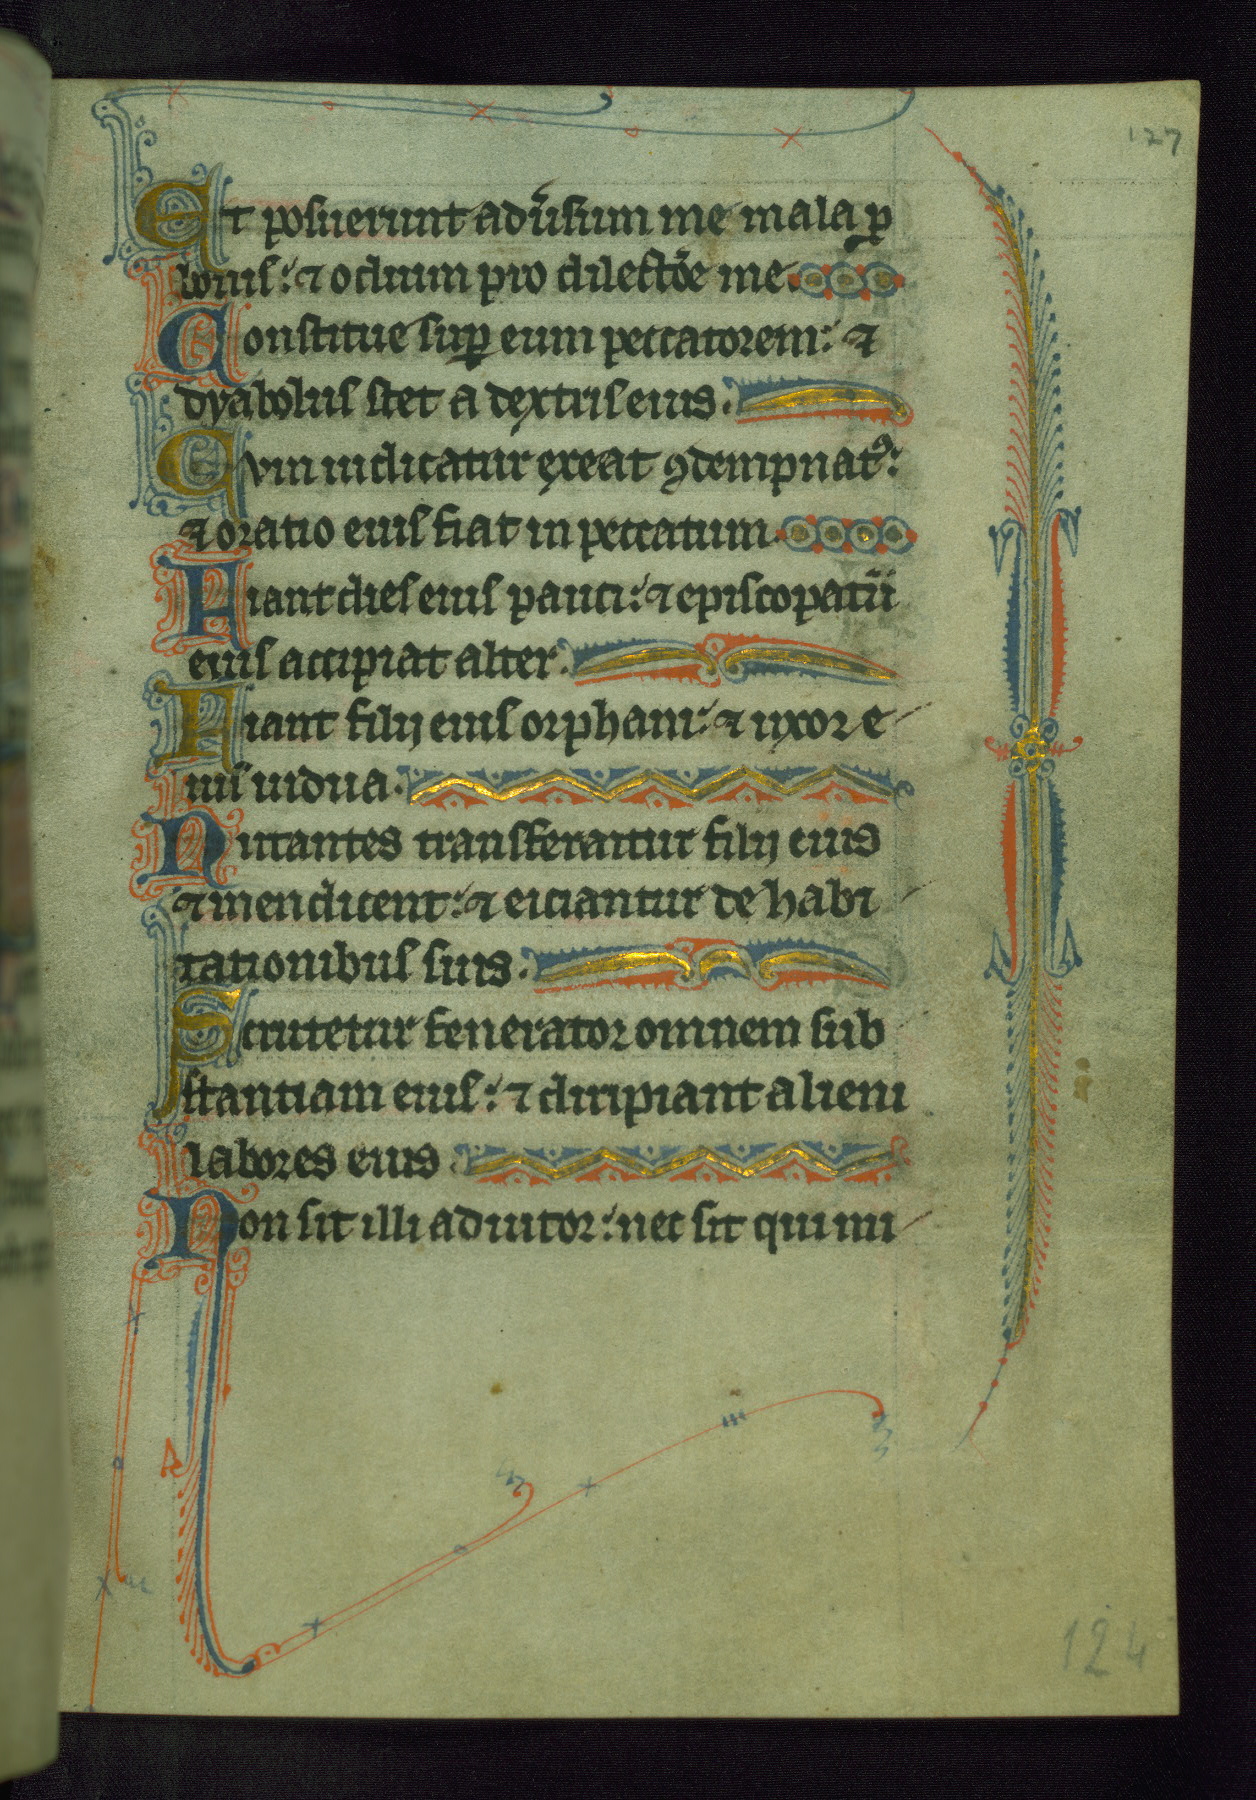 127
Et posuerunt adu̾sum me mala ꝑ
bonis: ⁊ odium pro dilectōe me
Constitue suꝑ eum peccatorem: ⁊
dyabolus stet a dextris eius.
Cvm iudicatur exeat ꝯdempnatꝰ:
⁊ oratio eius fiat in peccatum.
Fiant dies eius pauci: ⁊ episcopatū
eius accipiat alter.
Fiant filij eius orphani: ⁊ uxor e
ius uidua.
Nutantes transferantur filij eius
⁊ mendicent: ⁊ eiciantur de habi
tationibus suis.
Scrutetur fenerator omnem sub
stantiam eius: ⁊ diripiant alieni
labores eius
Non sit illi adiutor: nec sit qui mi
124